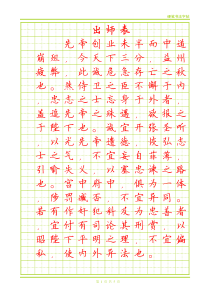 出师表
先帝创业未半而中道
崩殂，今天下三分，益州
疲弊，此诚危急存亡之秋
也。然侍卫之臣不懈于内
，忠志之士忘身于外者，
盖追先帝之殊遇，欲报之
于陛下也。诚宜开张圣听
，以光先帝遗德，恢弘志
士之气，不宜妄自菲薄，
引喻失义，以塞忠谏之路
也。宫中府中，俱为一体
，陟罚臧否，不宜异同。
若有作奸犯科及为忠善者
，宜付有司论其刑赏，以
昭陛下平明之理，不宜偏
私，使内外异法也。